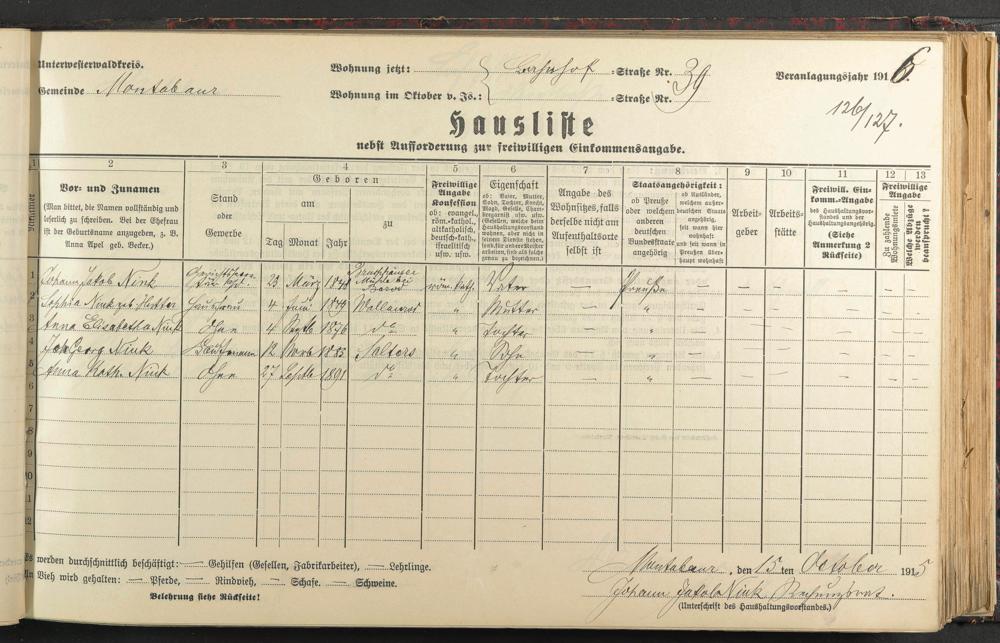 Unterwesterwaldkreis.
Gemeinde Montabaur
Wohnung jetzt: Bahnhof =Straße Nr. 39
Wohnung im Oktober v. Js.: =Straße Nr.
Veranlagungsjahr 1916
126/127.
Hausliste
nebst Aufforderung zur freiwilligen Einkommensangabe.
1 2 3 4 5 6 7 8 9 10 11 12 13
Nummer
Vor- und Zunamen
(Man bittet, die Namen vollständig und
leserlich zu schreiben. Bei der Ehefrau
ist der Geburtsname anzugeben, z. B.
Anna Apel geb. Becker.)
Stand
oder
Gewerbe
Geboren
am
Tag Monat Jahr
zu
Freiwillige
Angabe
Konfession
ob: evangel.,
röm.-kathol.,
altkatholisch,
deutsch-kath.,
israelitisch
usw. usw.
Eigenschaft
ob: Vater, Mutter,
Sohn, Tochter, Knecht,
Magd, Geselle,
Angabe des
Wohnsitzes, falls
derselbe nicht am
Aufenthaltsorte
selbst ist
Staatsangehörigkeit:
ob Preuße
oder welchem
anderen
deutschen
Bundesstaate
angehörig
ob Ausländer,
welchem außer-
deutschen Staate
angehörig,
seit wann hier
wohnhaft
und seit wann in
Preußen über-
haupt wohnhaft
Arbeit-
geber
Arbeits-
stätte
Freiwill. Ein-
komm.-Angabe
des Haushaltungsvor-
standes und der
Haushaltungsangehörig.
(Siehe
Anmerkung 2
Rückseite)
Freiwillige
Angabe
Zu zahlende
Wohnungsmiete
Welche Abzüge
werden
beansprucht?
1 Johann Jakob Nink 23 März röm. kath. Vater — Preuße — — — — —
2 Sophia Nink geb. Hausfrau 4 Juni 1849 " Mutter — " — — — — —
3 Anna Elisabetha Nink Ohne 4 Septb 1876 do " Tochter — " — — — — —
4 Joh Georg Nink Kaufmann 12 Novb Selters " Sohn — " — — — — —
5 Anna Kath. Nink Ohne 27 Septb 1891 do " Tochter — " — — — — —
6
7
8
9
10
11
12
Es werden durchschnittlich beschäftigt: — Gehilfen (Gesellen, Fabrikarbeiter), — Lehrlinge.
An Vieh wird gehalten: — Pferde, — Rindvieh, — Schafe. — Schweine.
Belehrung siehe Rückseite!
Montabaur, den 15 ten October 1915
Johann Jakob Nink Rechnungsrat.
(Unterschrift des Haushaltungsvorstandes.)